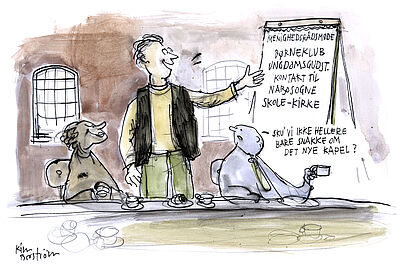 MENIGHEDSRÅDSMØDE
BØRNEKLUB
UNGDOMSGUDSTJ.
KONTAKT TIL
NABOSOGNE
SKOLE-KIRKE
SKU' VI IKKE HELLERE
BARE SNAKKE OM
DET NYE KAPEL?
Kim
Broström